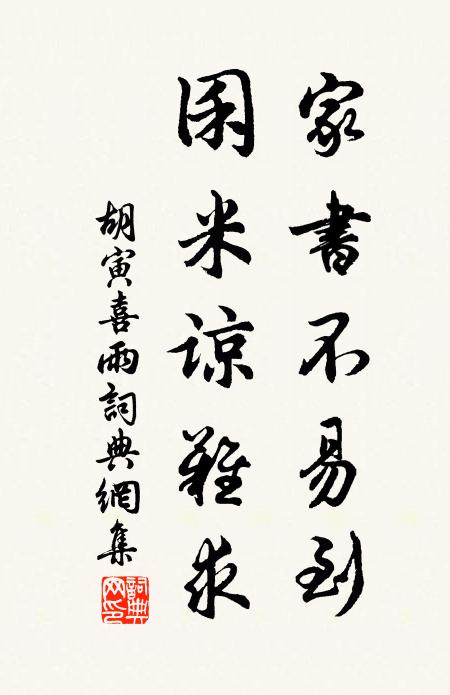 家書不易到
囷米諒難求
胡寅喜雨詞典網集
詞典网印